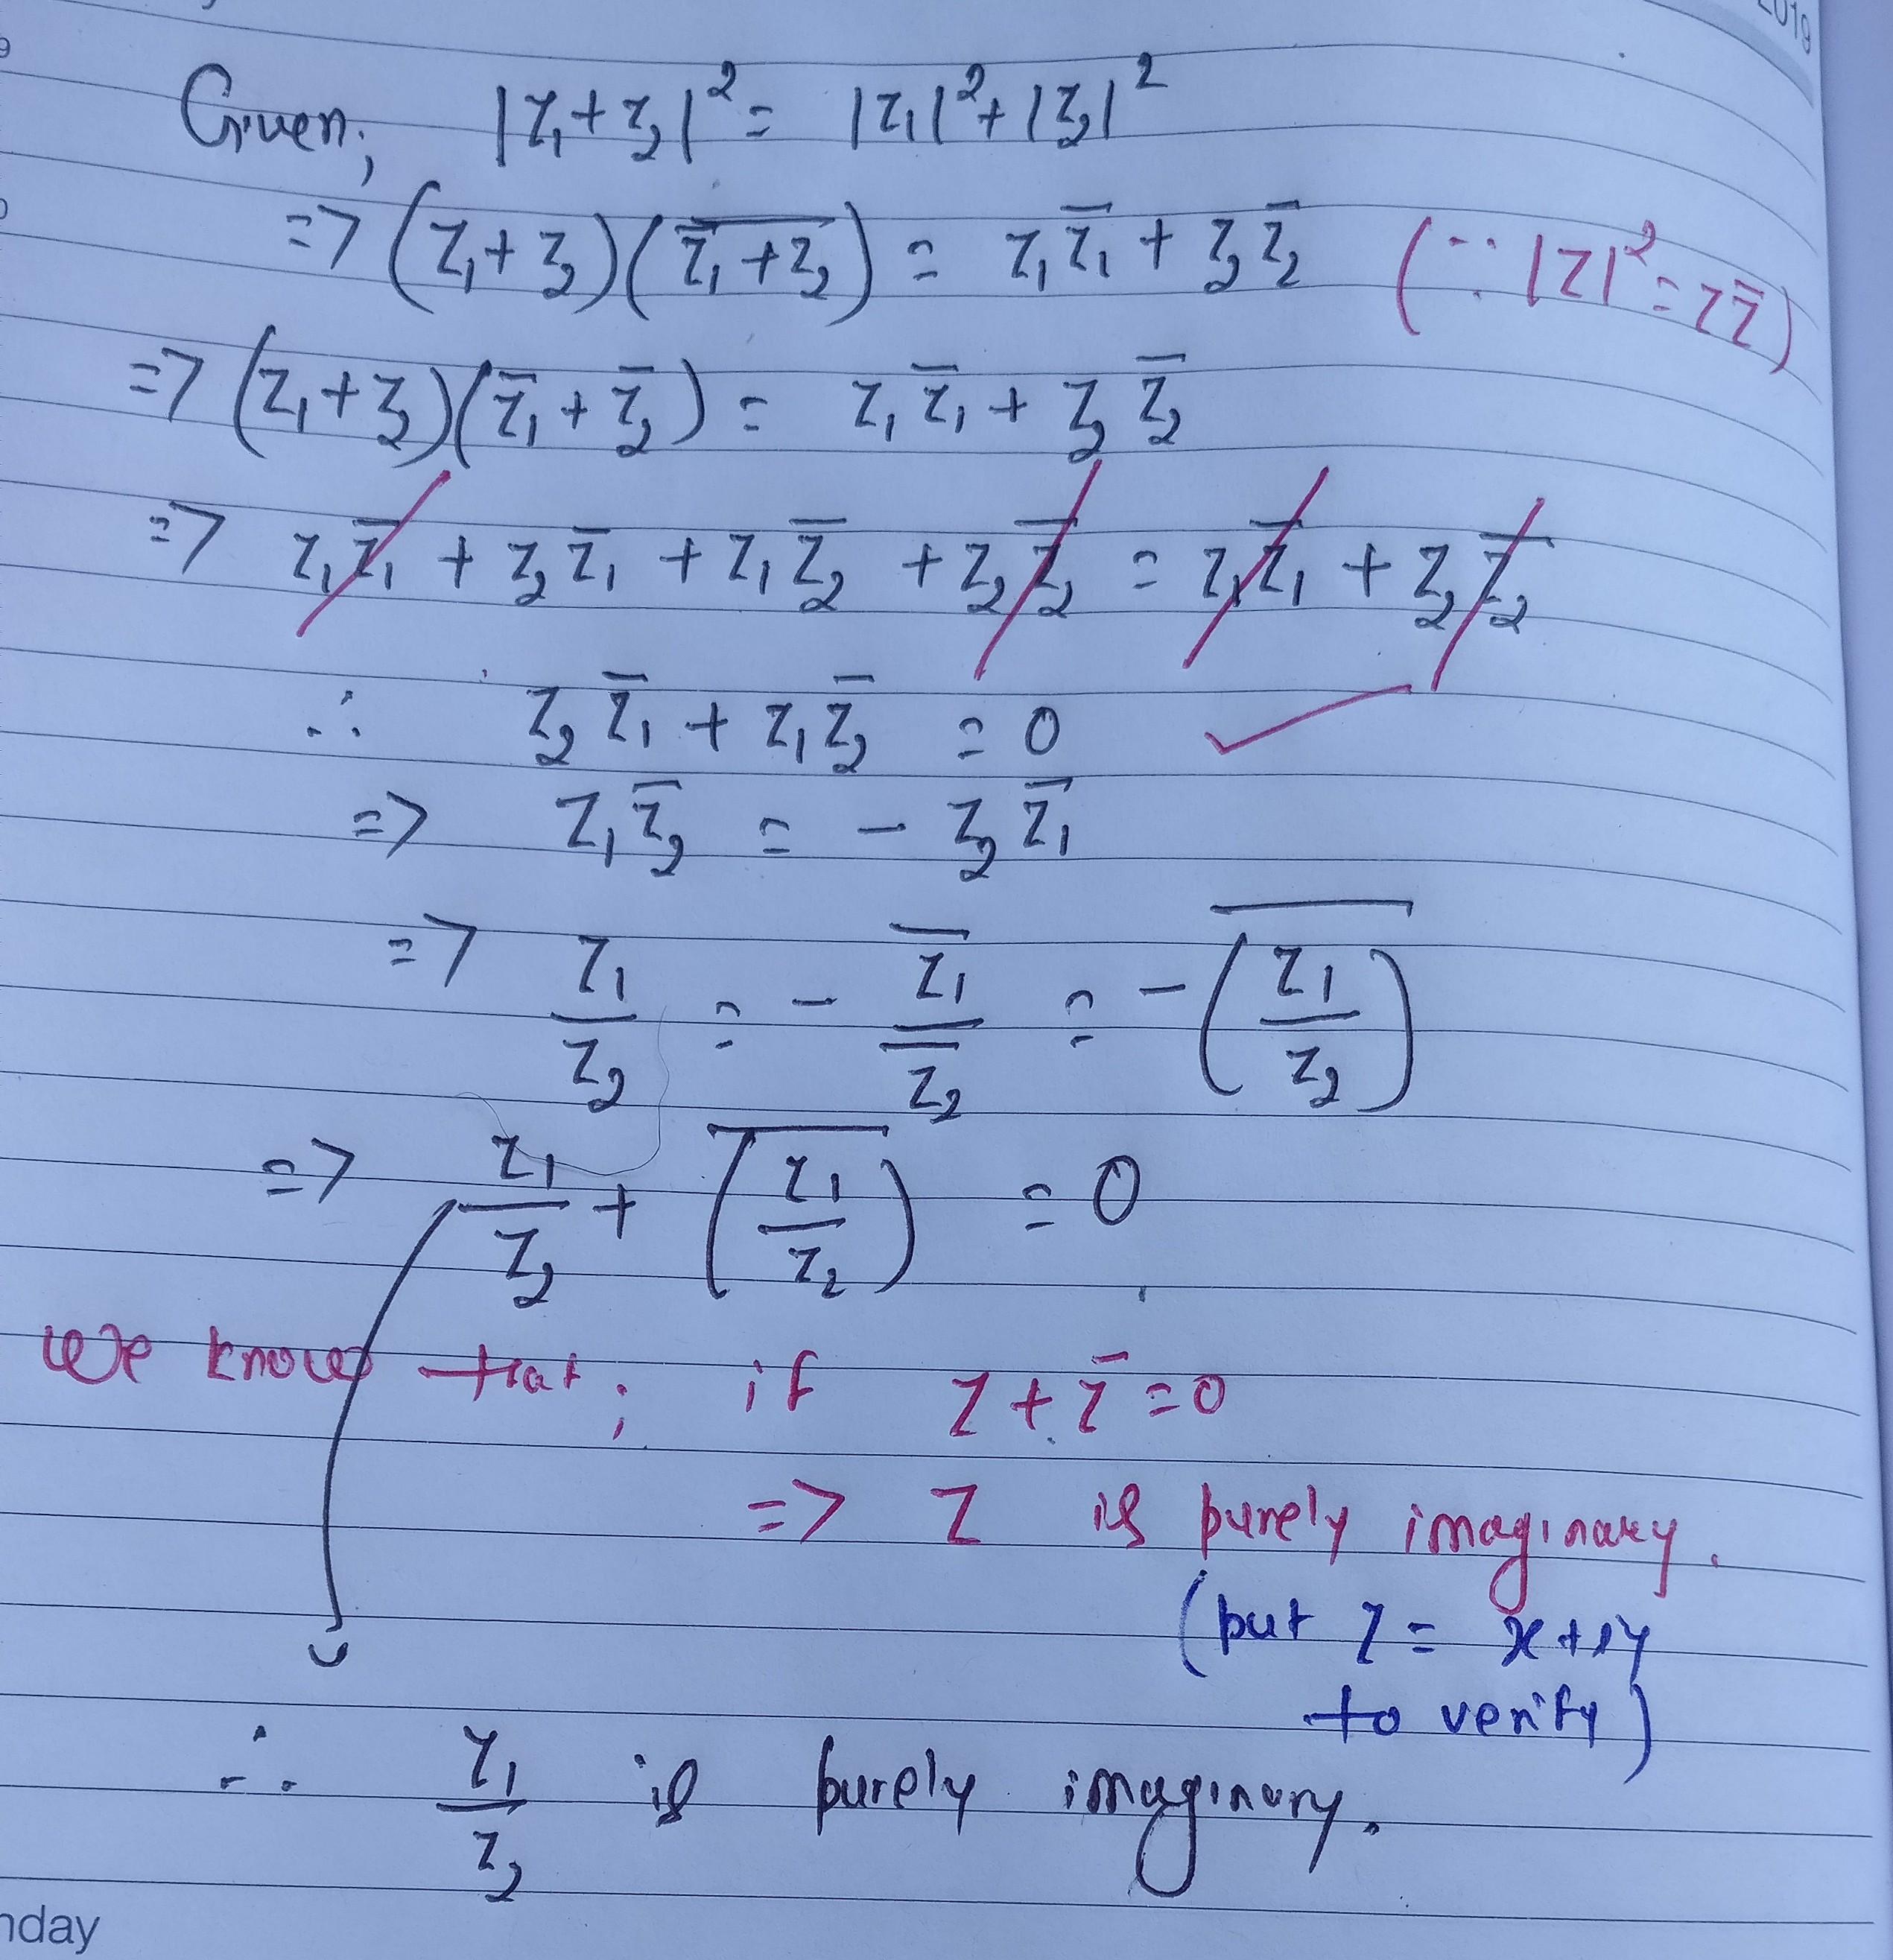 2019
Given; |z₁+z₂|² = |z₁|²+|z₂|²
=> (z₁+z₂)(z̅₁̅+̅z̅₂̅) = z₁z̅₁ + z₂z̅₂ (∵ |z|²=zz̅)
=> (z₁+z₂)(z̅₁+z̅₂) = z₁z̅₁ + z₂z̅₂
=> z₁z̅₁ + z₂z̅₁ + z₁z̅₂ + z₂z̅₂ = z₁z̅₁ + z₂z̅₂
∴ z₂z̅₁ + z₁z̅₂ = 0 ✓
=> z₁z̅₂ = - z₂z̅₁
=> z₁/z₂ = - z̅₁/z̅₂ = - \overline{(z₁/z₂)}
=> z₁/z₂ + \overline{(z₁/z₂)} = 0
We know that; if z+z̅=0
=> z is purely imaginary.
(put z = x+iy
to verify)
∴ z₁/z₂ is purely imaginary.
nday